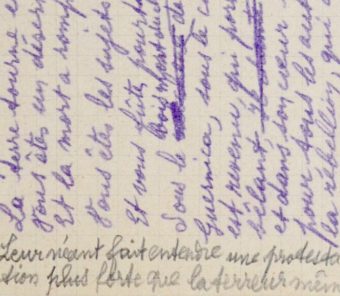 La terre tourne e
Vous êtes un déser
Et la mort a romp
Vous êtes les sujets
Et vous fûtes pourta
Sous le
Guernica, sous le c
est revenu, qui por
bêlant
et dans son cœur
pour tous les aut
la rébellion, qui
Leur néant fait entendre une protesta
tion plus forte que la terreur mêm